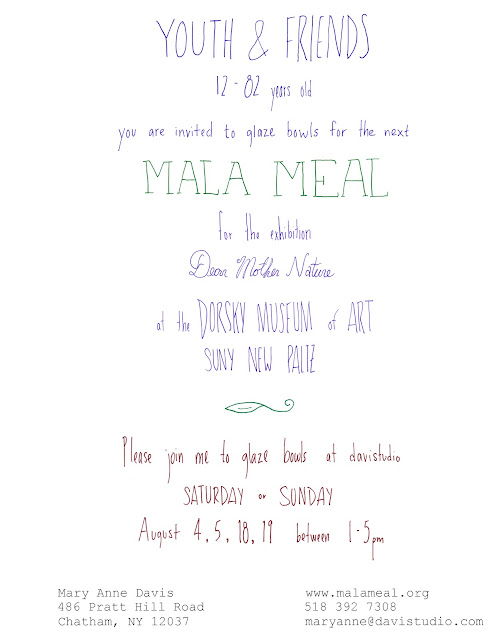 YOUTH & FRIENDS
12 - 82 years old
you are invited to glaze bowls for the next
MALA MEAL
for the exhibition
Dear Mother Nature
at the DORSKY MUSEUM of ART
SUNY NEW PALTZ
Please join me to glaze bowls at davistudio
SATURDAY or SUNDAY
August 4, 5, 18, 19 between 1-5pm
Mary Anne Davis
486 Pratt Hill Road
Chatham, NY 12037
www.malameal.org
518 392 7308
maryanne@davistudio.com